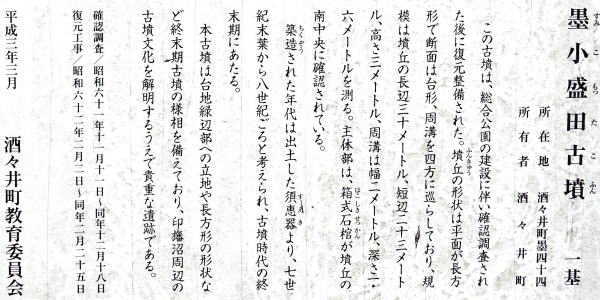 墨小盛田古墳　一基
すみこもったこふん
所在地　酒々井町墨四十四
所有者　酒々井町
この古墳は、総合公園の建設に伴い確認調査され
た後に復元整備された。墳丘の形状は平面が長方
ふんきゅう
形で断面は台形、周溝を四方に巡らしており、規
模は墳丘の長辺三十メートル、短辺二十三メート
ル、高さ三メートル、周溝は幅二メートル、深さ一・
六メートルを測る。主体部は、箱式石棺が墳丘の
はこしきせっかん
南中央に確認されている。
築造された年代は出土した須恵器より、七世
ちくぞう
すえき
紀末葉から八世紀ごろと考えられ、古墳時代の終
末期にあたる。
本古墳は台地縁辺部への立地や長方形の形状な
ど終末期古墳の様相を備えており、印旛沼周辺の
古墳文化を解明するうえで貴重な遺跡である。
確認調査／昭和六十一年十一月十一日～同年十二月十八日
復元工事／昭和六十二年二月二日～同年二月二十五日
平成三年三月　酒々井町教育委員会